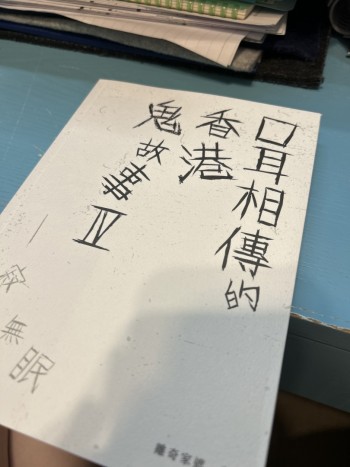 口耳相傳的
香港
鬼故事IV
一夜無眠